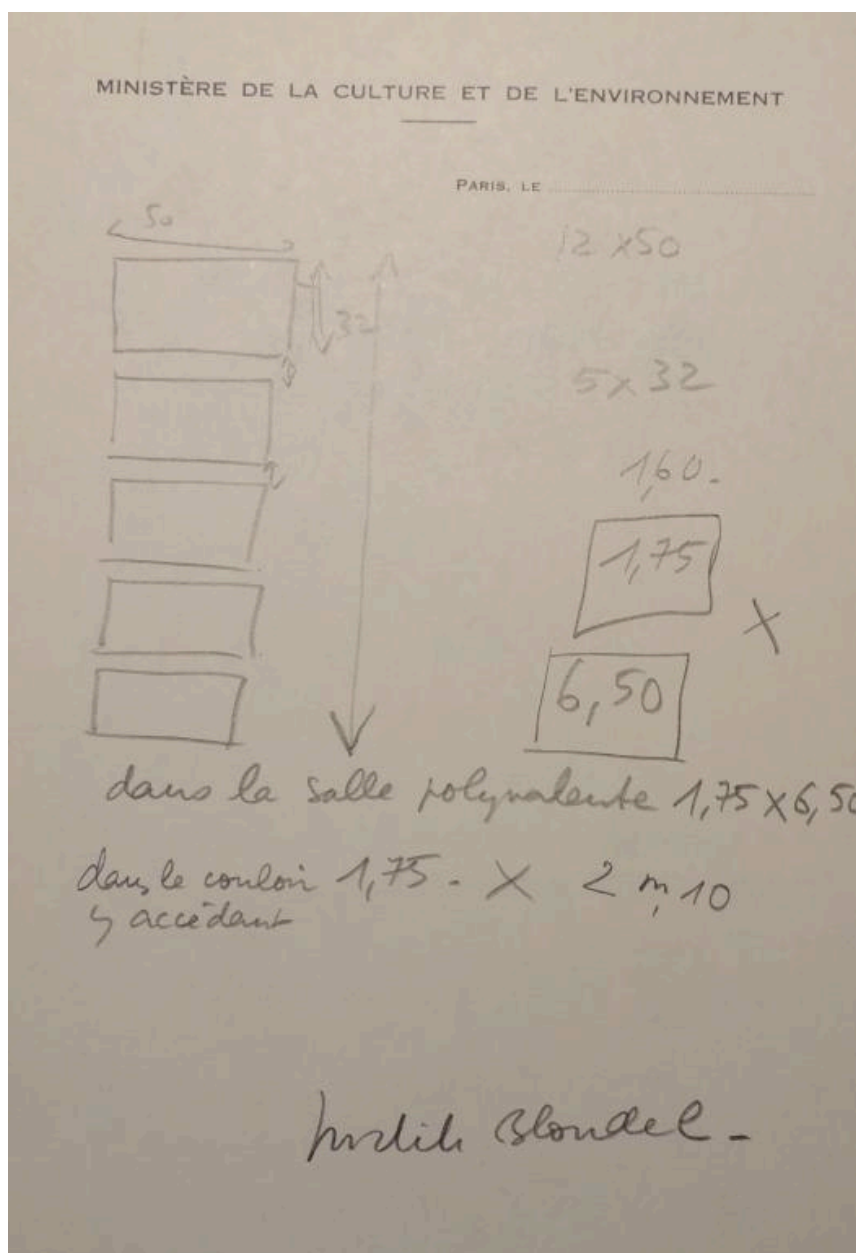 MINISTÈRE DE LA CULTURE ET DE L'ENVIRONNEMENT
PARIS, LE
50
12 x 50
32
5 x 32
1,60.
1,75
X
6,50
dans la salle polyvalente 1,75 X 6,50
dans le couloir 1,75 - X 2 m, 10
y accédant
Judith Blondel -